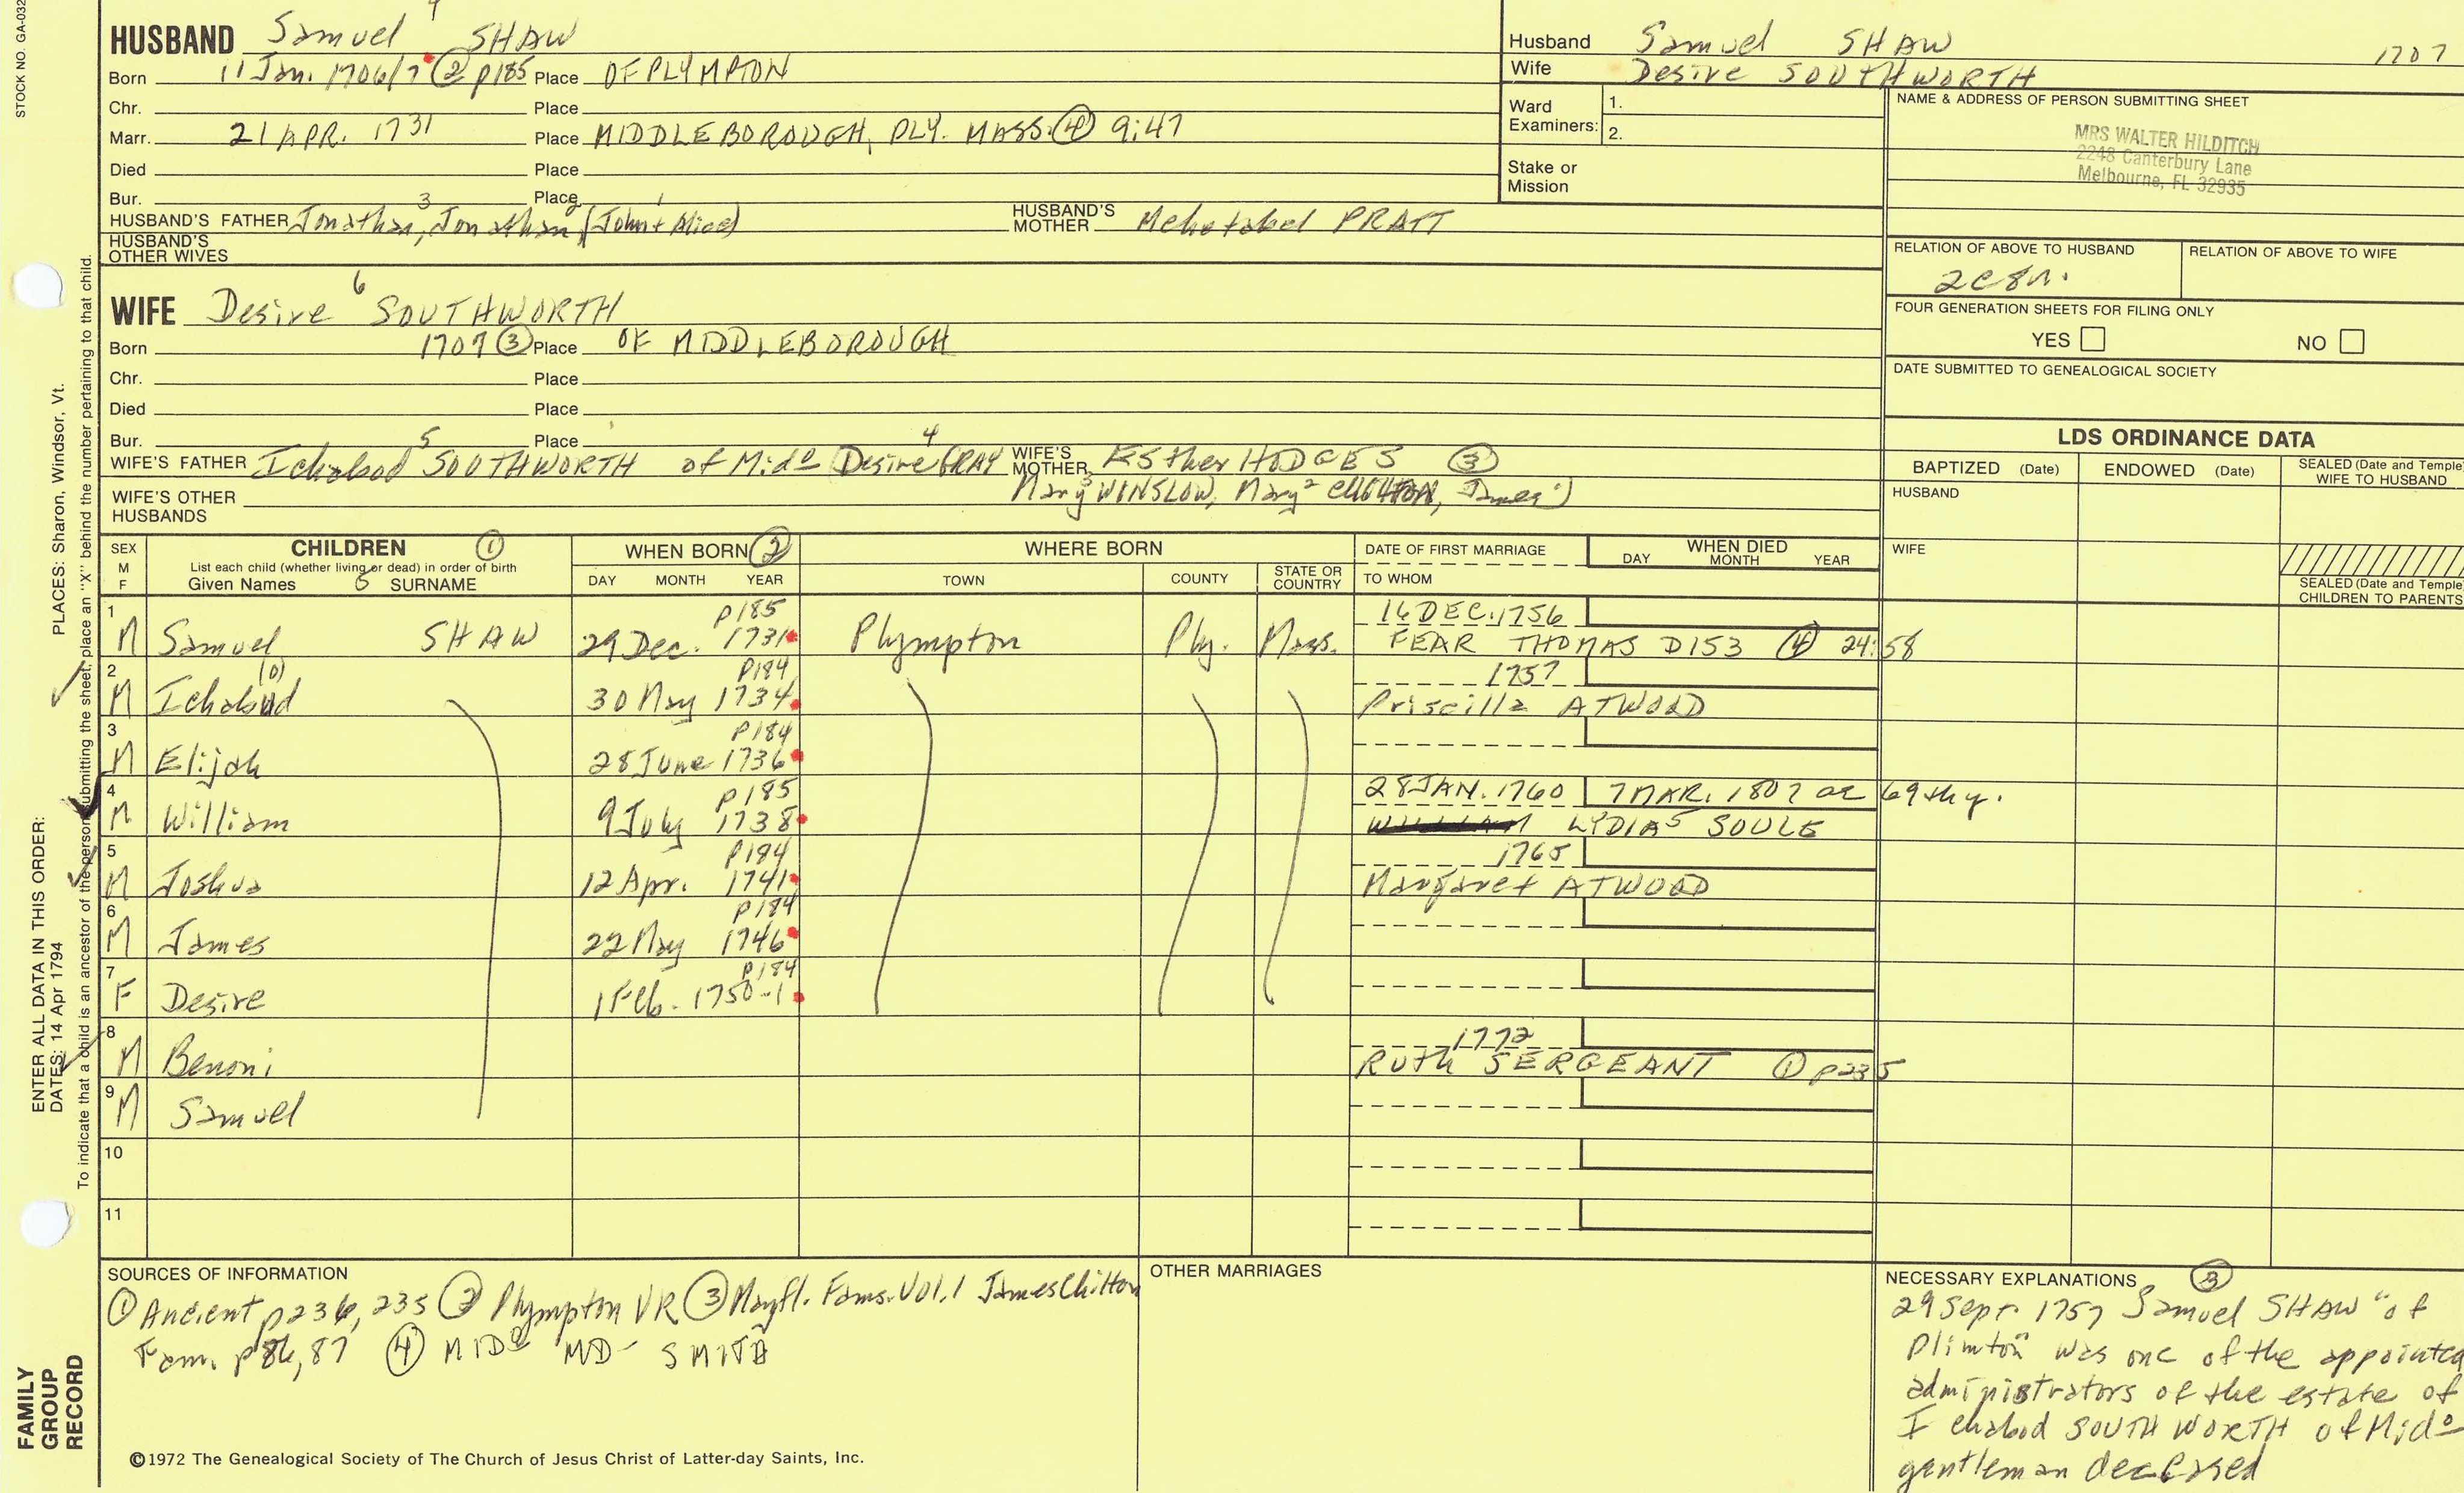 STOCK NO. GA-032
4
HUSBAND Samuel SHAW
Born 11 Jan. 1706/7 ② p185 Place OF PLYMPTON
Chr. Place
Marr. 21 APR. 1731 Place MIDDLEBOROUGH, PLY. MASS. ④ 9:47
Died Place
Bur. Place
3 2 1
HUSBAND'S FATHER Jonathan, Jonathan (John + Alice) HUSBAND'S MOTHER Mehetabel PRATT
HUSBAND'S OTHER WIVES
Husband Samuel SHAW 1707
Wife Desire SOUTHWORTH
Ward Examiners: 1.
2.
Stake or Mission
NAME & ADDRESS OF PERSON SUBMITTING SHEET
MRS WALTER HILDITCH
2248 Canterbury Lane
Melbourne, FL 32935
RELATION OF ABOVE TO HUSBAND RELATION OF ABOVE TO WIFE
FOUR GENERATION SHEETS FOR FILING ONLY
YES NO
DATE SUBMITTED TO GENEALOGICAL SOCIETY
6
WIFE Desire SOUTHWORTH
Born 1707 ③ Place OF MIDDLEBOROUGH
Chr. Place
Died Place
Bur. Place
5 4
WIFE'S FATHER Ichabod SOUTHWORTH of Mido (Desire GRAY WIFE'S MOTHER Esther HODGES ③
Mary3 WINSLOW, Mary2 CHILTON, James1)
WIFE'S OTHER HUSBANDS
LDS ORDINANCE DATA
BAPTIZED (Date) ENDOWED (Date) SEALED (Date and Temple) WIFE TO HUSBAND
HUSBAND
WIFE
SEALED (Date and Temple) CHILDREN TO PARENTS
SEX M F
CHILDREN ①
List each child (whether living or dead) in order of birth
Given Names 5 SURNAME
WHEN BORN ②
DAY MONTH YEAR
WHERE BORN
TOWN COUNTY STATE OR COUNTRY
DATE OF FIRST MARRIAGE
TO WHOM
WHEN DIED
DAY MONTH YEAR
p185 16 DEC. 1756
1 M Samuel SHAW 29 Dec. 1731 Plympton Ply. Mass. FEAR THOMAS D153 ④ 24:58
(o) p184 1757
2 M Ichabud 30 May 1734 Priscilla ATWOOD
p184
3 M Elijah 28 June 1736
p185 28 JAN. 1760 7 MAR. 1807 ae 69th y.
4 M William 9 July 1738 LYDIA5 SOULE
p184 1765
5 M Joshua 12 Apr. 1741 Margaret ATWOOD
p184
6 M James 22 May 1746
p184
7 F Desire 1 Feb. 1750-1
1772
8 M Benoni RUth SERGEANT ① p235
9 M Samuel
10
11
SOURCES OF INFORMATION
① Ancient p236, 235 ② Plympton VR ③ Mayfl. Fams. Vol. 1 James Chilton
Fam. p86, 87 ④ MIDo MD- SMITH
OTHER MARRIAGES
NECESSARY EXPLANATIONS ③
29 Sept. 1757 Samuel SHAW "of
Plimton" was one of the appointed
administrators of the estate of
Ichabod SOUTHWORTH of Mido
gentleman deceased
©1972 The Genealogical Society of The Church of Jesus Christ of Latter-day Saints, Inc.
ENTER ALL DATA IN THIS ORDER:
DATES: 14 Apr 1794 PLACES: Sharon, Windsor, Vt.
To indicate that a child is an ancestor of the person submitting the sheet, place an "X" behind the number pertaining to that child.
FAMILY
GROUP
RECORD